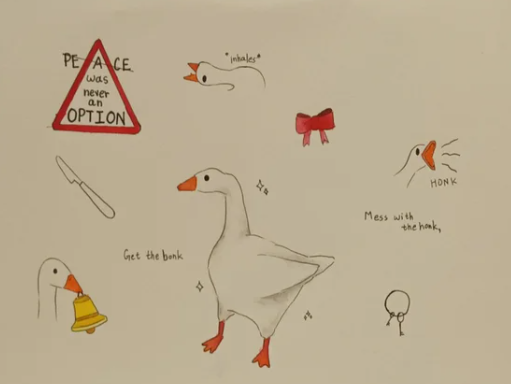 PEACE
was
never
an
OPTION
*inhales*
HONK
Mess with
the honk,
Get the bonk